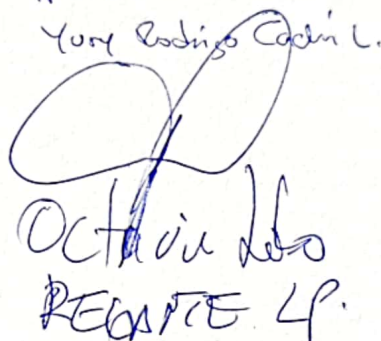 Yury Rodrigo Cadin L.
Octavio Lobo
REGANTE LP.